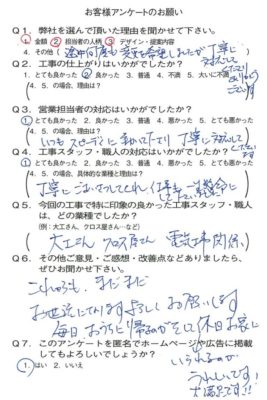 お客様アンケートのお願い
Q1. 弊社を選んで頂いた理由を聞かせて下さい。
1. 金額 2. 担当者の人柄 3. デザイン・提案内容
4. その他(
Q2. 工事の仕上がりはいかがでしたか?
1. とても良かった 2. 良かった 3. 普通 4. 不満 5. 大いに不満
(4. 5. の場合、理由は?
Q3. 営業担当者の対応はいかがでしたか?
1. とても良かった 2. 良かった 3. 普通 4. 悪かった 5. とても悪かった
(4. 5. の場合、理由は?
いつもスピーディに 丁寧に対応して
Q4. 工事スタッフ・職人の対応はいかがでしたか?
1. とても良かった 2. 良かった 3. 普通 4. 悪かった 5. とても悪かった
(4. 5. の場合、具体的な職種と理由は?
丁寧に
Q5. 今回の工事で特に印象の良かった工事スタッフ・職人
は、どの業種でしたか?
(例:大工さん、クロス屋さん…など)
大工さん クロス屋さん 電気工事関係
Q6. その他ご意見・ご感想・改善点などありましたら、
ぜひお聞かせ下さい。
これからも、まだまだ
お世話になります よろしくお願いします
毎日おうちに帰るのが そして休日お家に
Q7. このアンケートを匿名でホームページや広告に掲載
してもよろしいでしょうか?
1. はい 2. いいえ
いられるのが
うれしいです!
大満足です!!